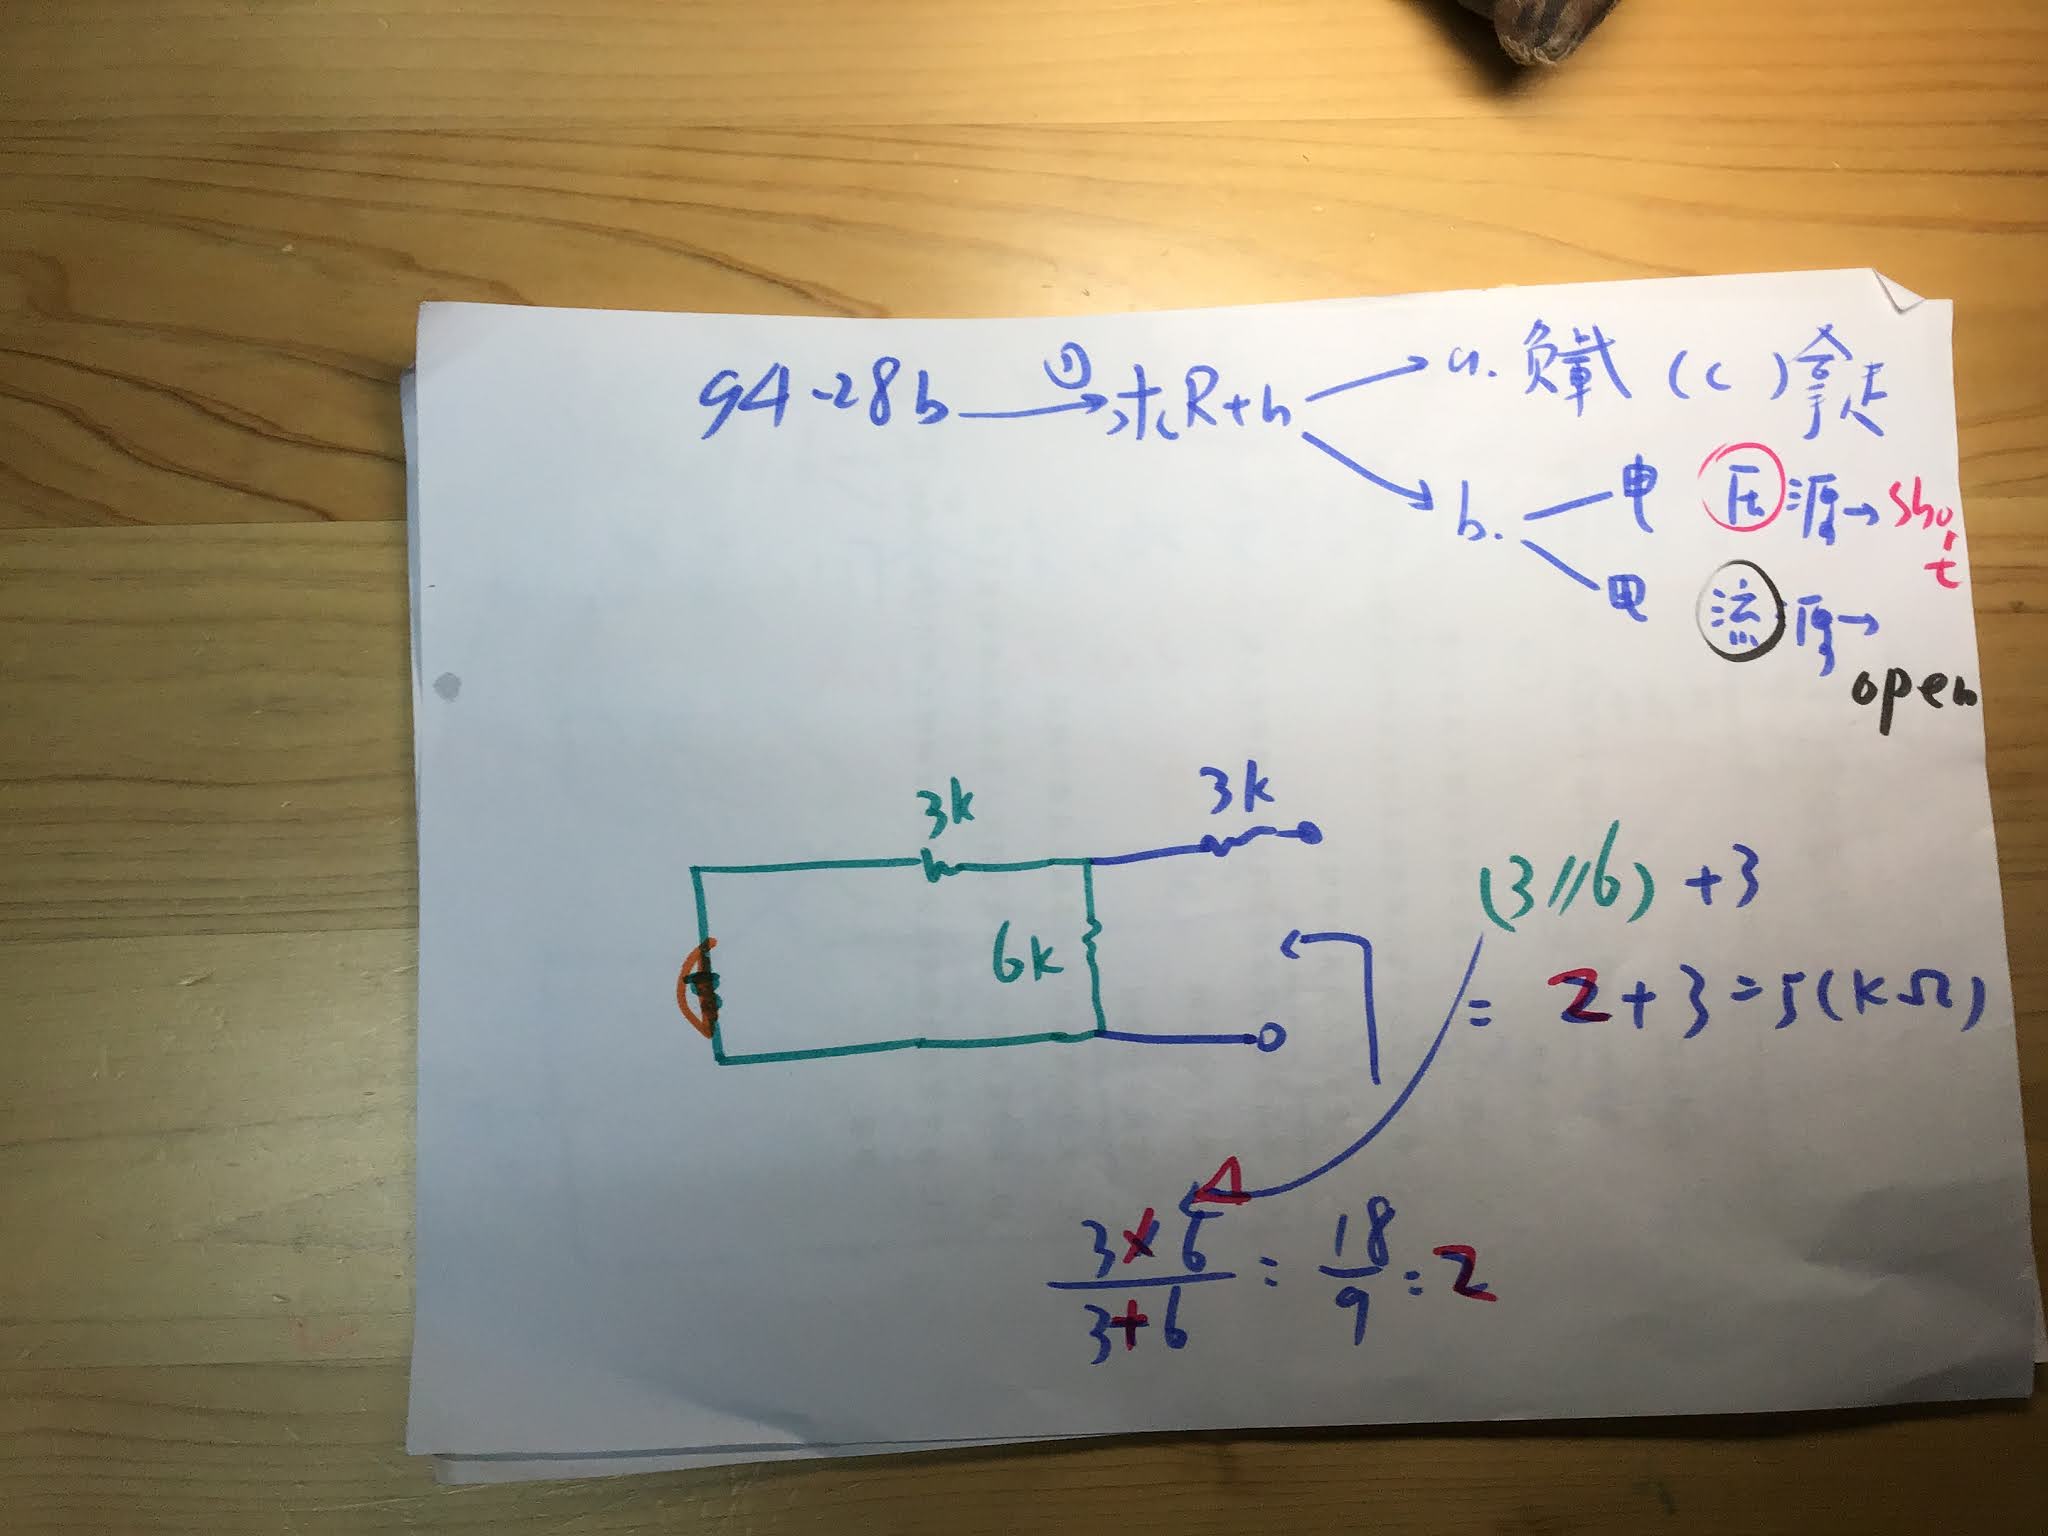 94-28b ① 求Rth a. 負載 (C) 拿走
b. 电 压 源→ short
电 流 源→ open
3k 3k
6k
(3//6) +3
= 2+3=5(kΩ)
3×6/3+6 = 18/9 = 2